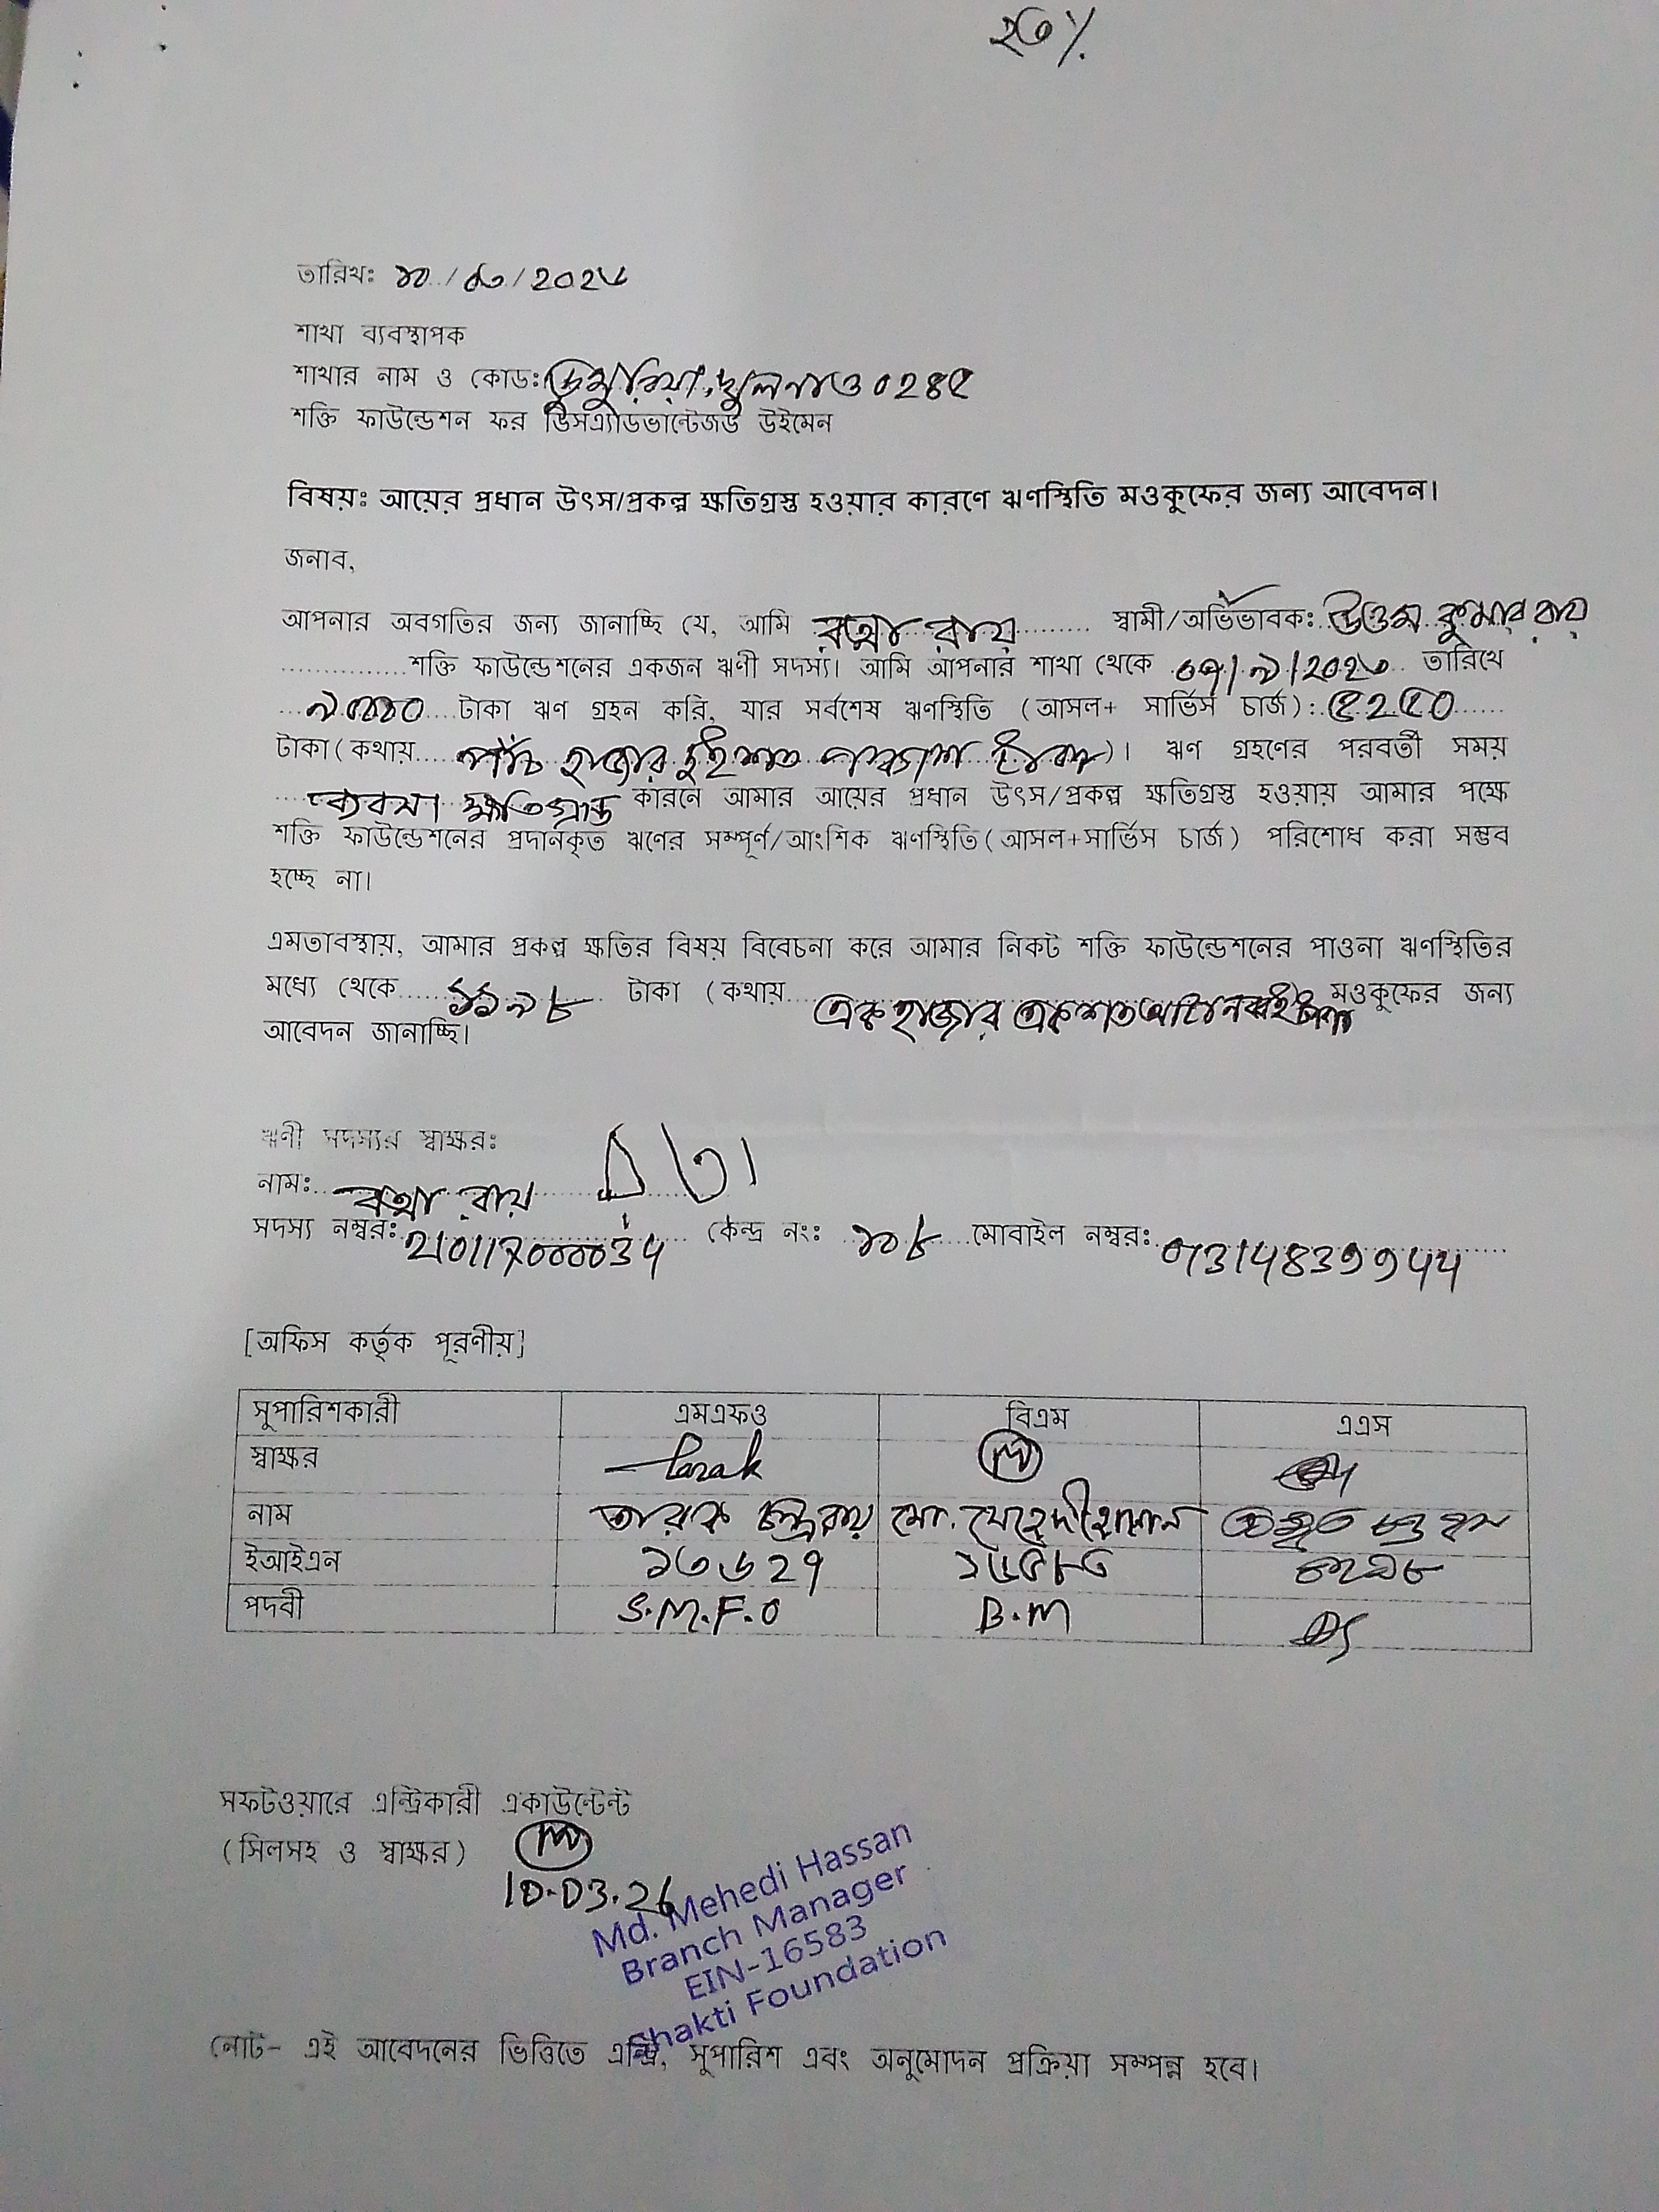 ২৩%
তারিখঃ ১০/০৩/2026
শাখা ব্যবস্থাপক
শাখার নাম ও কোডঃ ডুমুরিয়া, খুলনা ও 0285
শক্তি ফাউন্ডেশন ফর ডিসএ্যাডভান্টেজড উইমেন
বিষয়ঃ আয়ের প্রধান উৎস/প্রকল্প ক্ষতিগ্রস্ত হওয়ার কারণে ঋণস্থিতি মওকুফের জন্য আবেদন।
জনাব,
আপনার অবগতির জন্য জানাচ্ছি যে, আমি রত্না রায় স্বামী/অভিভাবক: উত্তম কুমার রায়
শক্তি ফাউন্ডেশনের একজন ঋণী সদস্য। আমি আপনার শাখা থেকে তারিখে
টাকা ঋণ গ্রহন করি, যার সর্বশেষ ঋণস্থিতি (আসল+ সার্ভিস চার্জ): ৫২৫০
টাকা(কথায় পাঁচ হাজার দুইশত পঞ্চাশ )। ঋণ গ্রহণের পরবর্তী সময়
ব্যবসা ক্ষতিগ্রস্ত কারনে আমার আয়ের প্রধান উৎস/প্রকল্প ক্ষতিগ্রস্ত হওয়ায় আমার পক্ষে
শক্তি ফাউন্ডেশনের প্রদানকৃত ঋণের সম্পূর্ণ/আংশিক ঋণস্থিতি(আসল+সার্ভিস চার্জ) পরিশোধ করা সম্ভব
হচ্ছে না।
এমতাবস্থায়, আমার প্রকল্প ক্ষতির বিষয় বিবেচনা করে আমার নিকট শক্তি ফাউন্ডেশনের পাওনা ঋণস্থিতির
মধ্যে থেকে ১১৯৮ টাকা (কথায় এক হাজার একশত আটানব্বই টাকা মওকুফের জন্য
আবেদন জানাচ্ছি।
ঋণী সদস্যর স্বাক্ষর:
নাম: রত্না রায়
সদস্য নম্বর: 21011700034 কেন্দ্র নং: ১০৮ মোবাইল নম্বর: 01314839944
[অফিস কর্তৃক পূরণীয়]
সুপারিশকারী এমএফও বিএম এএস
স্বাক্ষর Tarak
নাম তারক চন্দ্র রায় মো. মেহেদী হাসান
ইআইএন ১৩৬27 ১৬৫৮৩
পদবী S.M.F.O B.M
সফটওয়ারে এন্ট্রিকারী একাউন্টেন্ট
(সিলসহ ও স্বাক্ষর)
10.03.26
Md. Mehedi Hassan
Branch Manager
EIN-16583
Shakti Foundation
নোট- এই আবেদনের ভিত্তিতে এন্ট্রি, সুপারিশ এবং অনুমোদন প্রক্রিয়া সম্পন্ন হবে।